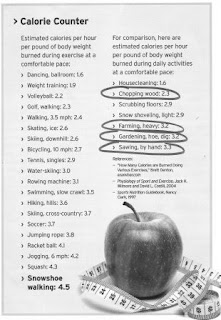 > Calorie Counter
Estimated calories per hour
per pound of body weight
burned during exercise at a
comfortable pace:
> Dancing, ballroom: 1.6
> Weight training: 1.9
> Volleyball: 2.2
> Golf, walking: 2.3
> Walking, 3.5 mph: 2.4
> Skating, ice: 2.6
> Skiing, downhill: 2.6
> Bicycling, 10 mph: 2.7
> Tennis, singles: 2.9
> Water-skiing: 3.0
> Rowing machine: 3.1
> Swimming, slow crawl: 3.5
> Hiking, hills: 3.6
> Skiing, cross-country: 3.7
> Soccer: 3.7
> Jumping rope: 3.8
> Racket ball: 4.1
> Jogging, 6 mph: 4.2
> Squash: 4.3
> Snowshoe
walking: 4.5
For comparison, here are
estimated calories per hour
per pound of body weight
burned during daily activities
at a comfortable pace:
> Housecleaning: 1.6
> Chopping wood: 2.3
> Scrubbing floors: 2.9
> Snow shoveling, light: 2.9
> Farming, heavy: 3.2
> Gardening, hoe, dig: 3.2
> Sawing, by hand: 3.3
References:
"How Many Calories are Burned Doing
Various Exercises,"
Physiology of Sport and Exercise, Jack H.
Wilmore and David L. Costill, 2004
Sports Nutrition Guidebook, Nancy
Clark, 1997